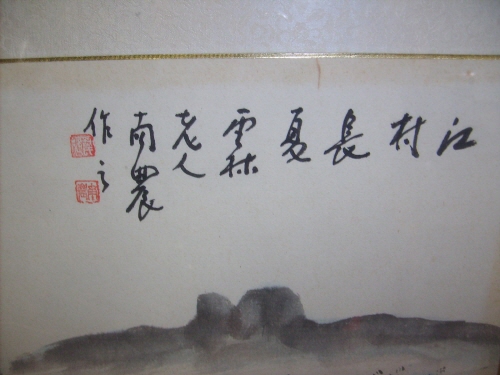 江
村
長
夏
雲林
老人
南農
作之